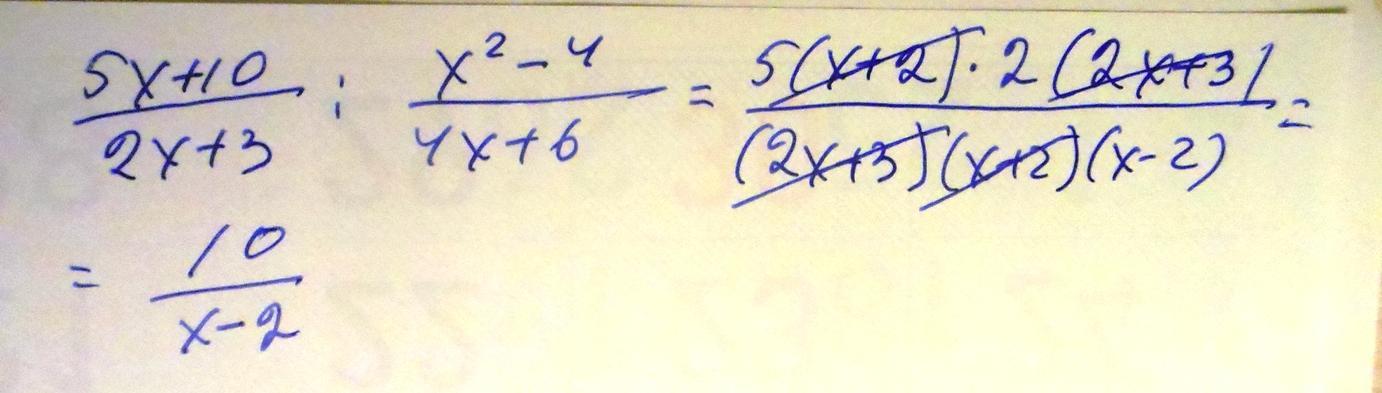 (5x+10)/(2x+3) : (x²-4)/(4x+6) = (5(x+2)·2(2x+3))/((2x+3)(x+2)(x-2)) =
= 10/(x-2)